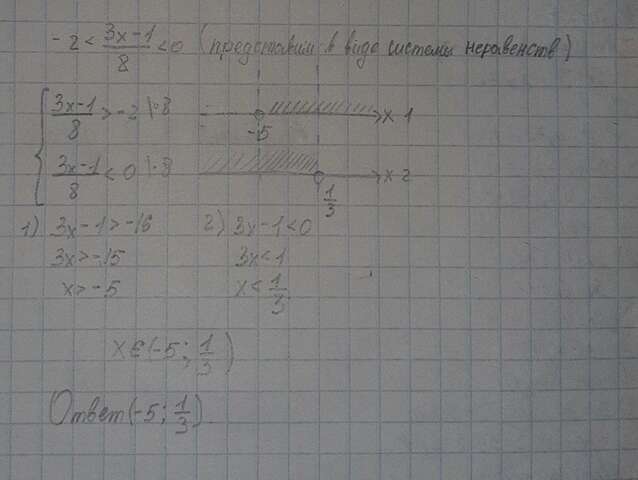 -2 < (3x-1)/8 < 0 (представим в виде системы неравенств)
{ (3x-1)/8 > -2 |·8
x 1
-5
(3x-1)/8 < 0 |·8
x 2
1/3
1) 3x-1>-16 2) 3x-1<0
3x>-15 3x<1
x>-5 x<1/3
xє(-5; 1/3)
Ответ(-5; 1/3).